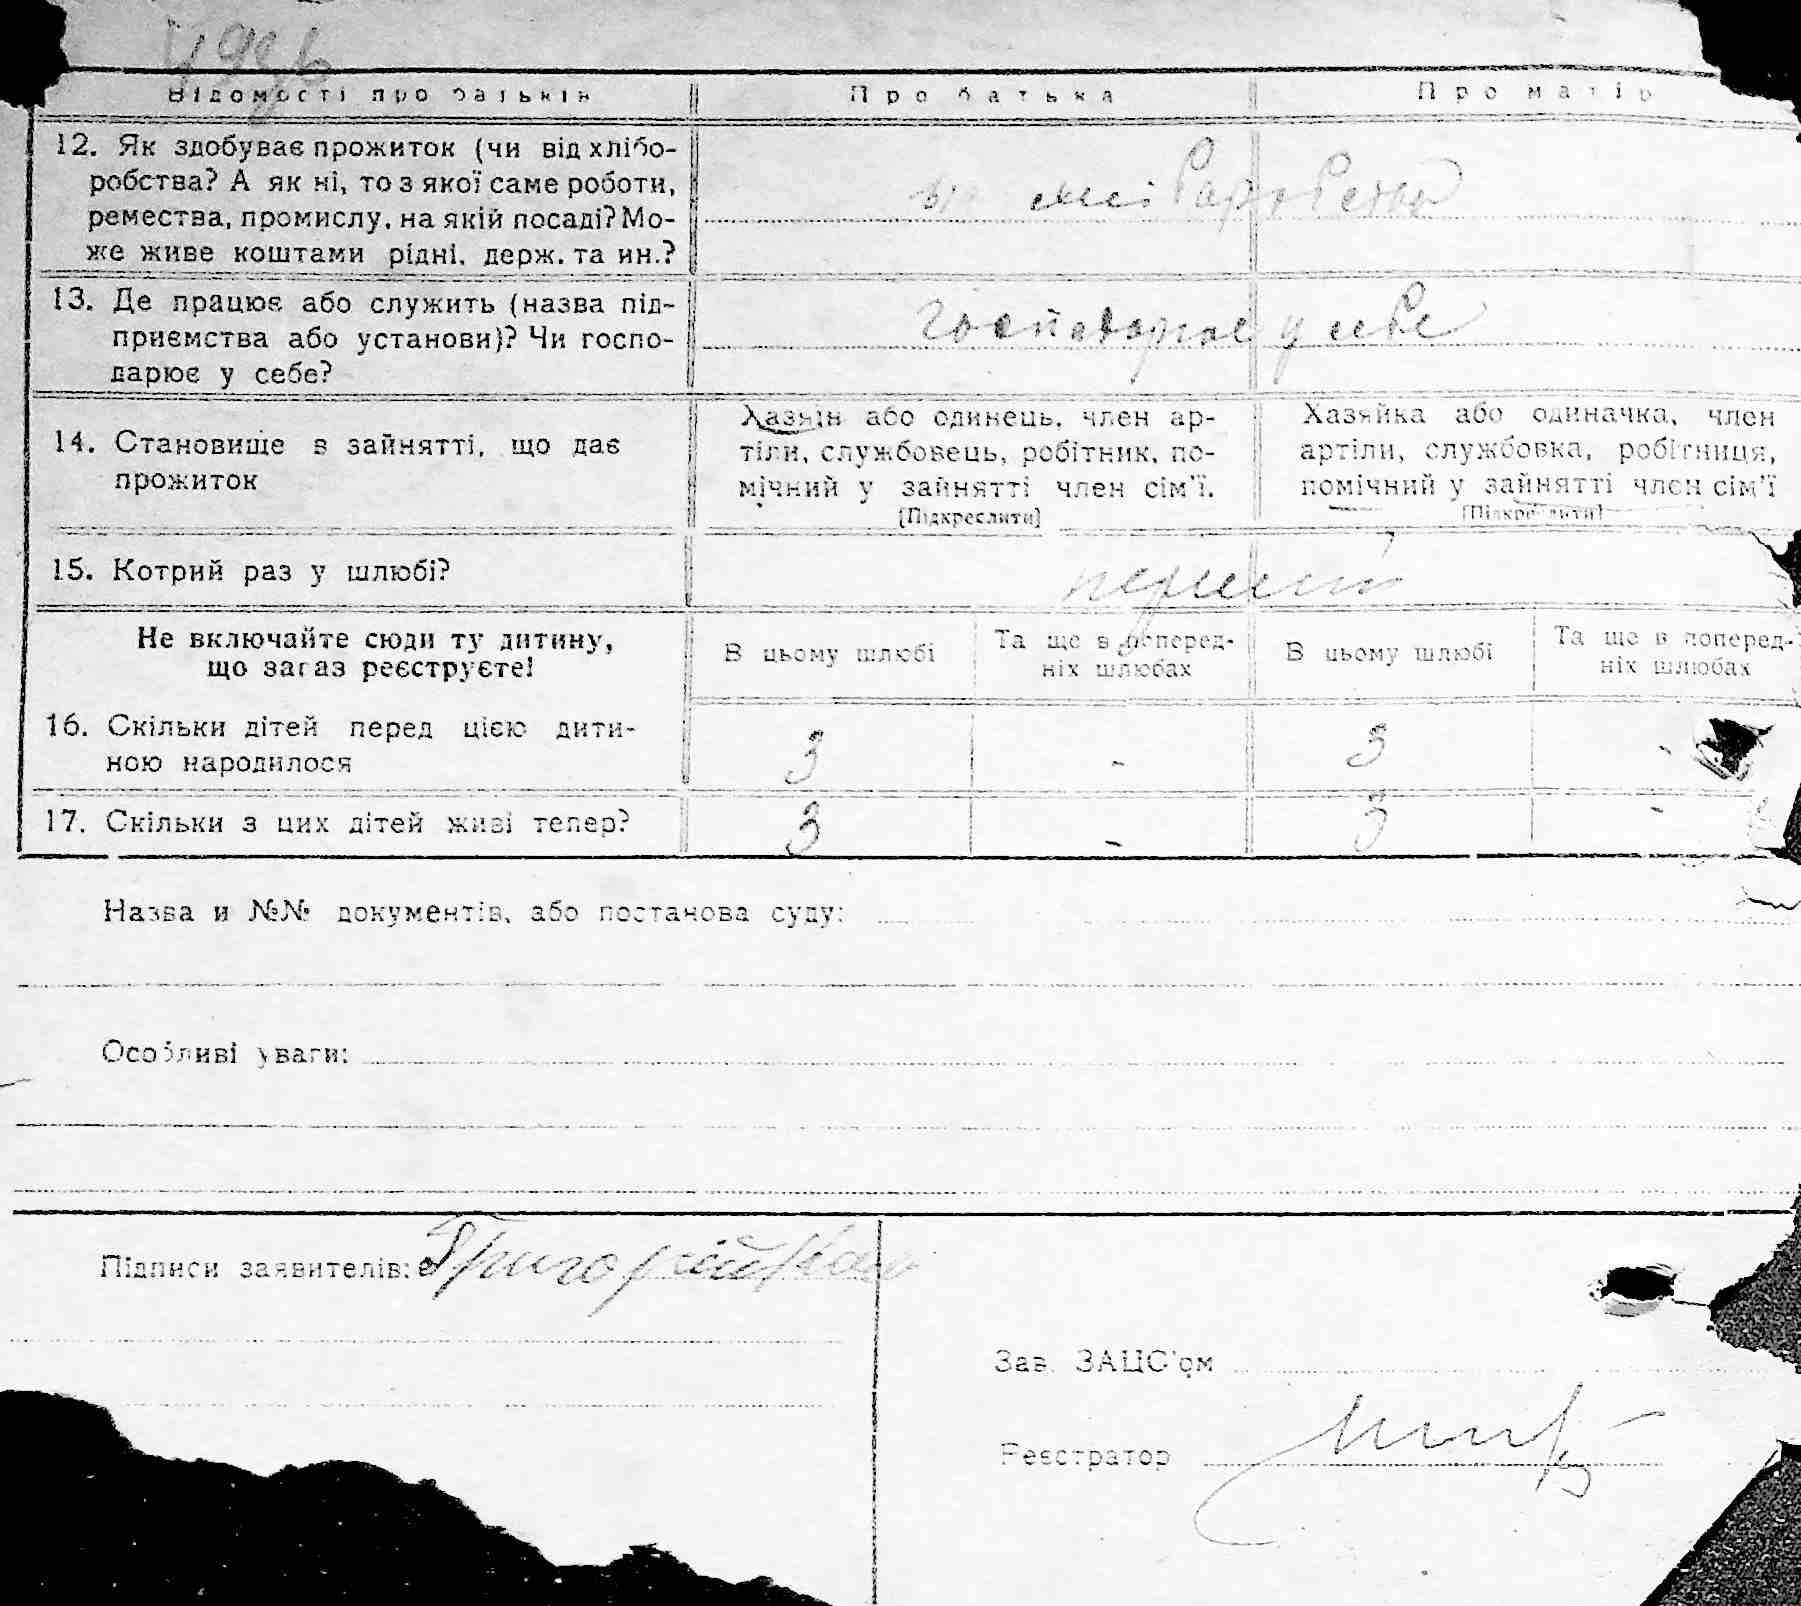 Відомості про батьків Про батька Про матір
12. Як здобуває прожиток (чи від хлібо-
робства? А як ні, то з якої саме роботи,
ремества, промислу, на якій посаді? Мо-
же живе коштами рідні, держ. та ин.?
13. Де працює або служить (назва під-
приємства або установи)? Чи госпо-
дарює у себе?
господарює у себе
14. Становище в зайнятті, що дає
прожиток
Хазяїн або одинець, член ар-
тіли, службовець, робітник, по-
мічний у зайнятті член сім'ї.
[Підкреслити]
Хазяйка або одиначка, член
артіли, службовка, робітниця,
помічний у зайнятті член сім'ї
[Підкреслити]
15. Котрий раз у шлюбі?
перший
Не включайте сюди ту дитину,
що зараз реєструєте!
В цьому шлюбі
Та ще в поперед-
ніх шлюбах
В цьому шлюбі
Та ще в поперед-
ніх шлюбах
16. Скільки дітей перед цією дити-
ною народилося
3 - 3 -
17. Скільки з цих дітей живі тепер? 3 - 3 -
Назва и №№ документів, або постанова суду:
Особливі уваги:
Підписи заявителів:
Зав. ЗАЦС'ом
Реєстратор